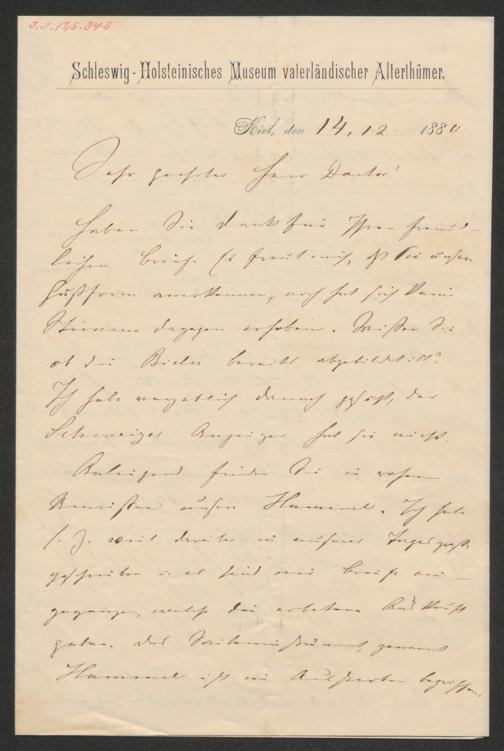 J.N. 125.345
Schleswig-Holsteinisches Museum vaterländischer Alterthümer.
Kiel, den 14. 12 1880
Sehr geehrter Herr Doctor!
Haben Sie Dank für Ihren freund-
lichen Brief. Es freut mich, dß Sie unsere
Gußform anerkennen, noch hat sich keine
Stimme dagegen erhoben. Wissen Sie
ob die Bieler bereits abgebildet ist?
Ich habe vergeblich danach gesucht, der
Schweizer Anzeiger hat sie nicht.
Beiliegend finden Sie in rohem
unsere Hammel. Ich habe
s. Z. weil darüber in unserer
geschrieben u. es sind mir Briefe ein-
gegangen, welche die erbetene Auskunft
gaben. Das genannt
Hammel ist im Aussterben begriffen.